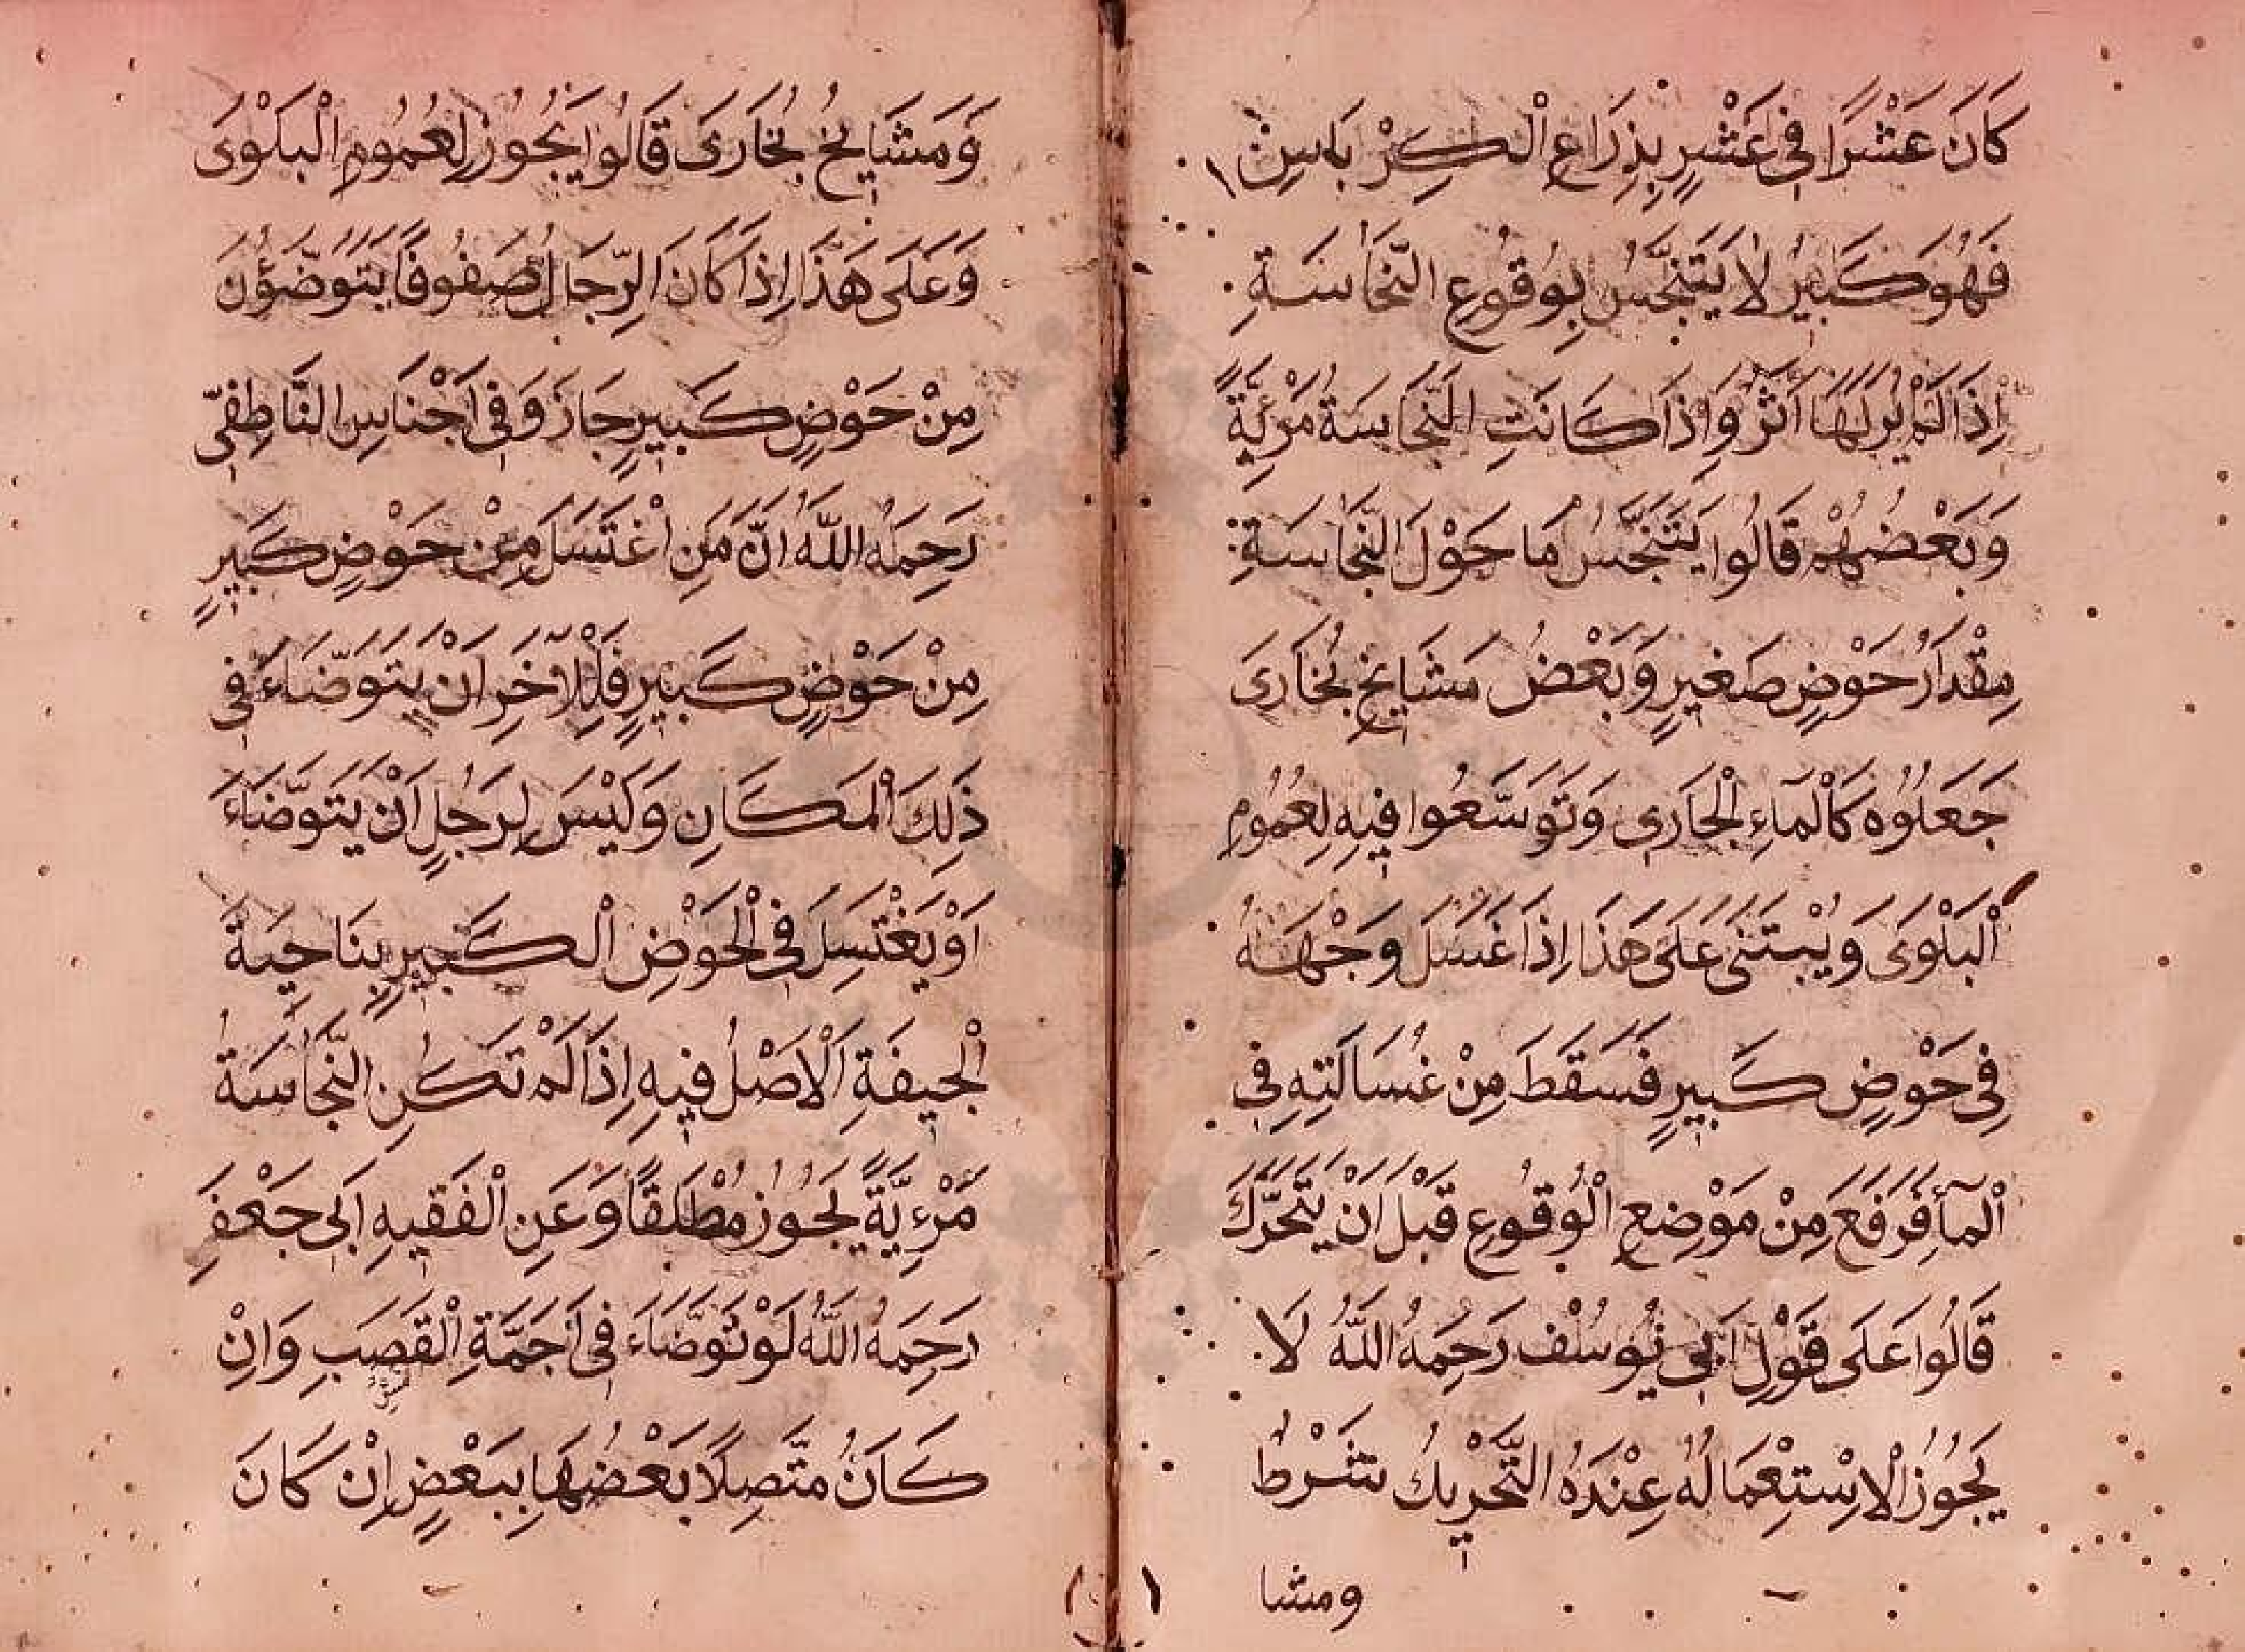 كَانَ عَشْرًا فِى عَشْرٍ بِذِرَاعِ الْكِرْبَاسِ
فَهُوَ كَبِيرٌ لَا يَتَنَجَّسُ بِوُقُوعِ النَّجَاسَةِ
اِذَا لَمْ يُرَ لَهَا اَثَرٌ وَاِذَا كَانَتِ النَّجَاسَةُ مَرْئِيَّةً
وَبَعْضُهُمْ قَالُوا يَتَنَجَّسُ مَا حَوْلَ النَّجَاسَةِ
مِقْدَارُ حَوْضٍ صَغِيرٍ وَبَعْضُ مَشَايِخِ بُخَارَى
جَعَلُوُهُ كَالْمَاءِ الْجَارِى وَتَوَسَّعُوا فِيهِ لِعُمُومِ
الْبَلْوَى وَيُبْتَنَى عَلَى هَذَا اِذَا غَسَلَ وَجْهَهُ
فِى حَوْضٍ كَبِيرٍ فَسَقَطَ مِنْ غُسَالَتِهِ فِى
الْمَآءِ فَرَفَعَ مِنْ مَوْضِعِ الْوُقُوعِ قَبْلَ اَنْ يَتَحَرَّكَ
قَالُوا عَلَى قَوْلِ اَبِى يُوسُفْ رَحِمَهُ اللّٰهُ لَا
يَجُوُزُ الْاِسْتِعْمَالُهُ عِنْدَهُ التَّحْرِيكُ شَرْطٌ
ومشا
وَمَشَايِخُ بُخَارَى قَالُوا يَجُوُزُ لِعُمُومِ الْبَلْوَى
وَعَلَى هَذَا اِذَا كَانَ الرِّجَالُ صُفُوفًا يَتَوَضَّؤُنَ
مِنْ حَوْضٍ كَبِيرٍ جَازَ وَفِى اَجْنَاسِ النَّاطِفِىّ
رَحِمَهُ اللّٰهُ اَنَّ مَنِ اغْتَسَلَ مِنْ حَوْضٍ كَبِيرٍ
مِنْ حَوْضٍ كَبِيرٍ فَلِلْآخَرِ اَنْ يَتَوَضَّاءَ فِى
ذَلِكَ الْمَكَانِ وَلَيْسَ لِرَجُلٍ اَنْ يَتَوَضَّاءَ
اَوْ يَغْتَسِلَ فِى الْحَوْضِ الْكَبِيرِ بِنَاحِيَةِ
الْجِيفَةِ اَلْاَصْلُ فِيهِ اِذَا لَمْ تَكُنِ النَّجَاسَةُ
مَرْءِيَّةً يَجُوُزُ مُطْلَقًا وَعَنِ الْفَقِيهِ اَبِى جَعْفَرٍ
رَحِمَهُ اللّٰهُ لَوْ تَوَضَّاءَ فِى اَجَمَّةِ الْقَصَبِ وَاِنْ
كَانَ مُتَّصِلًا بَعْضُهَا بِبَعْضٍ اِنْ كَانَ